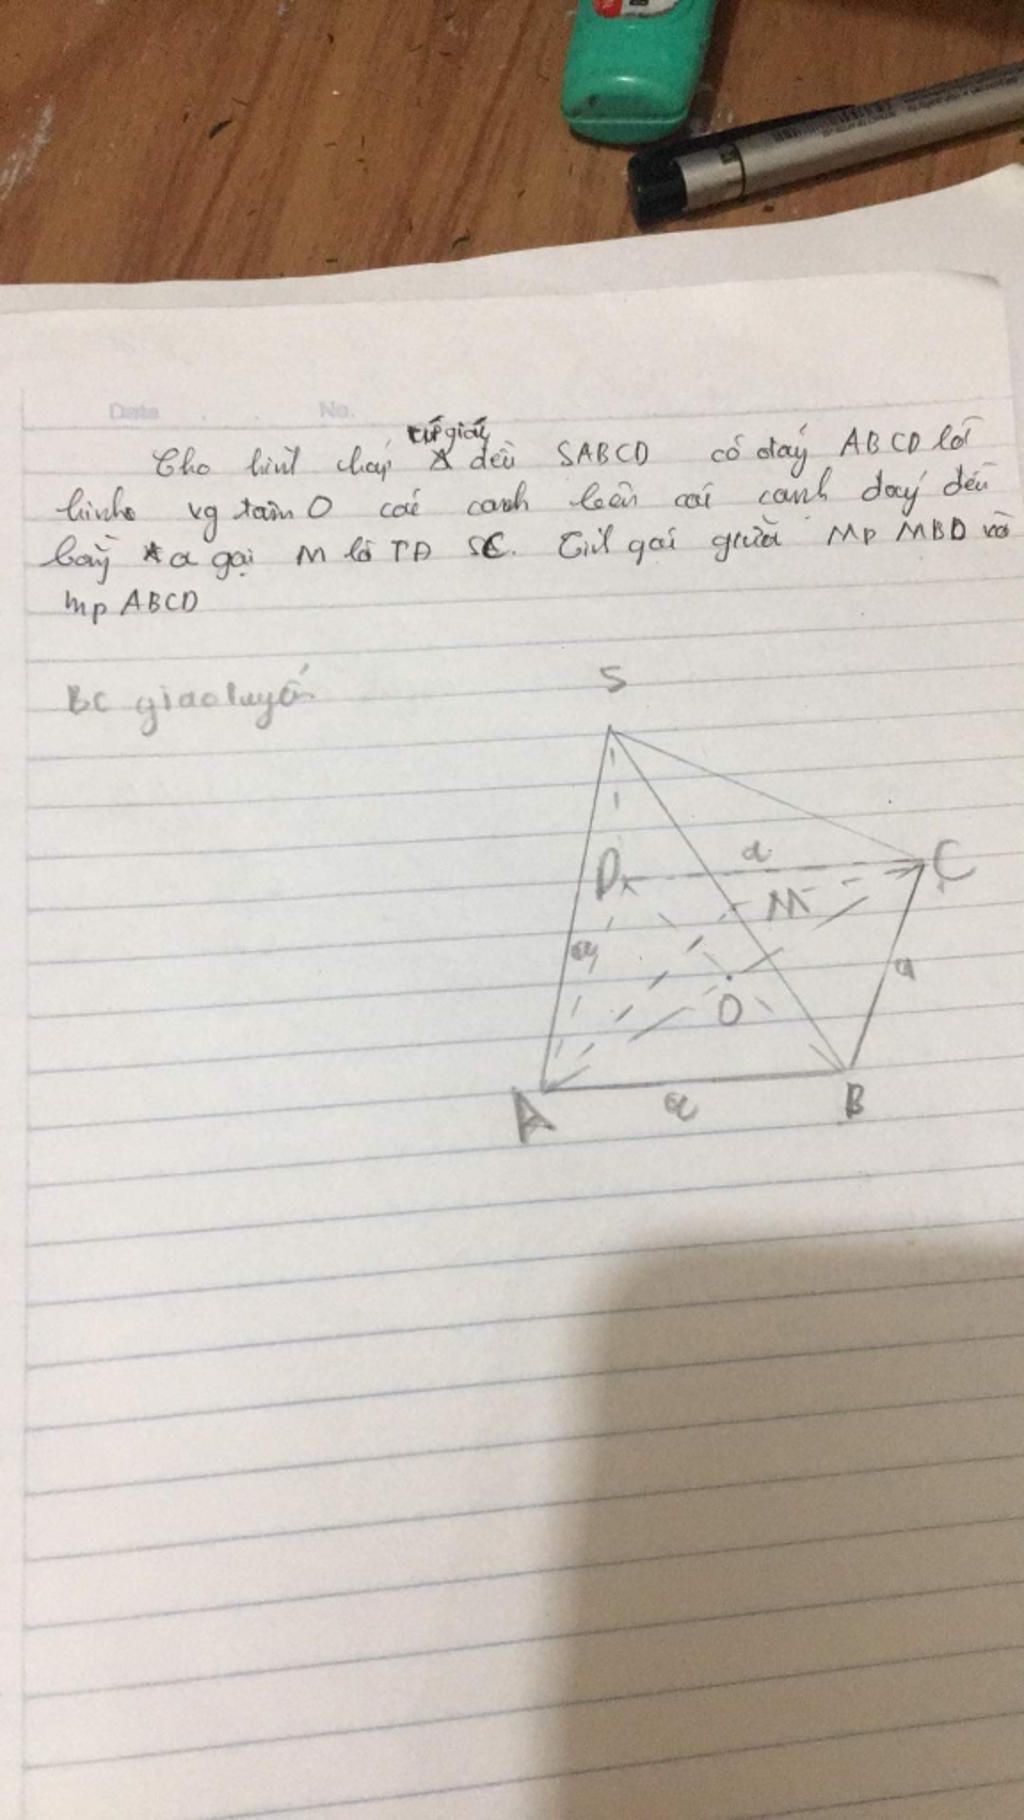 Date . . No.
Cho hình chóp tứ giác đều SABCD có đáy ABCD là
hình vg tâm O các cạnh bên các cạnh đáy đều
bằng a gọi M là TĐ SC. Tính góc giữa Mp MBD và
mp ABCD
BC giao tuyến
S
D a C
M
a
a
O
A a B